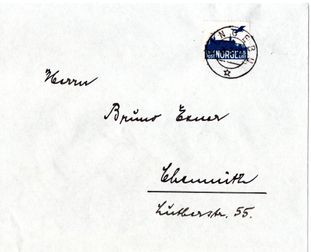 NORGE
Herrn
Bruno Exner
Chemnitz
Lutherstr. 55.